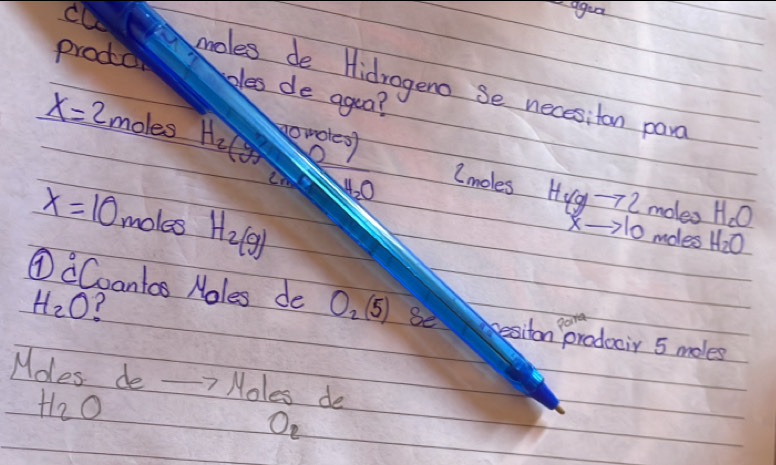 agua
moles de Hidrogeno se necesitan para
de agua?
X=2moles H2(g) 10 moles)
H2O
2moles H2(g) → 2 moles H2O
X → 10 moles H2O
X=10moles H2(g)
① ¿Cuantos Moles de O2(5) se para producir 5 moles
H2O?
Moles de → Moles de
H2O O2